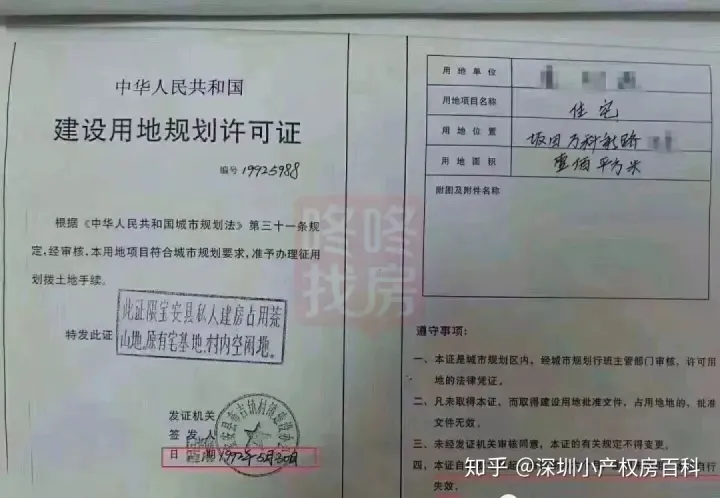 中华人民共和国
建设用地规划许可证
编号 19925988
根据《中华人民共和国城市规划法》第三十一条规
定,经审核、本用地项目符合城市规划要求,准予办理征用
划拨土地手续。
特发此证
此证限宝安县私人建房占用荒
山地、原有宅基地、村内空闲地。
发证机关
签发人
日期 1992年5月30日
用地单位
用地项目名称 住宅
用地位置 坂田万科新路
用地面积 壹佰平方米
附图及附件名称
遵守事项:
一、本证是城市规划区内,经城市规划行政主管部门审核,许可用
地的法律凭证。
二、凡未取得本证,而取得建设用地批准文件、占用地地的,批准
文件无效。
三、未经发证机关审核同意,本证的有关规定不得变更。
四、本证自
自行
失效。
咚咚
找房
知乎 @深圳小产权房百科